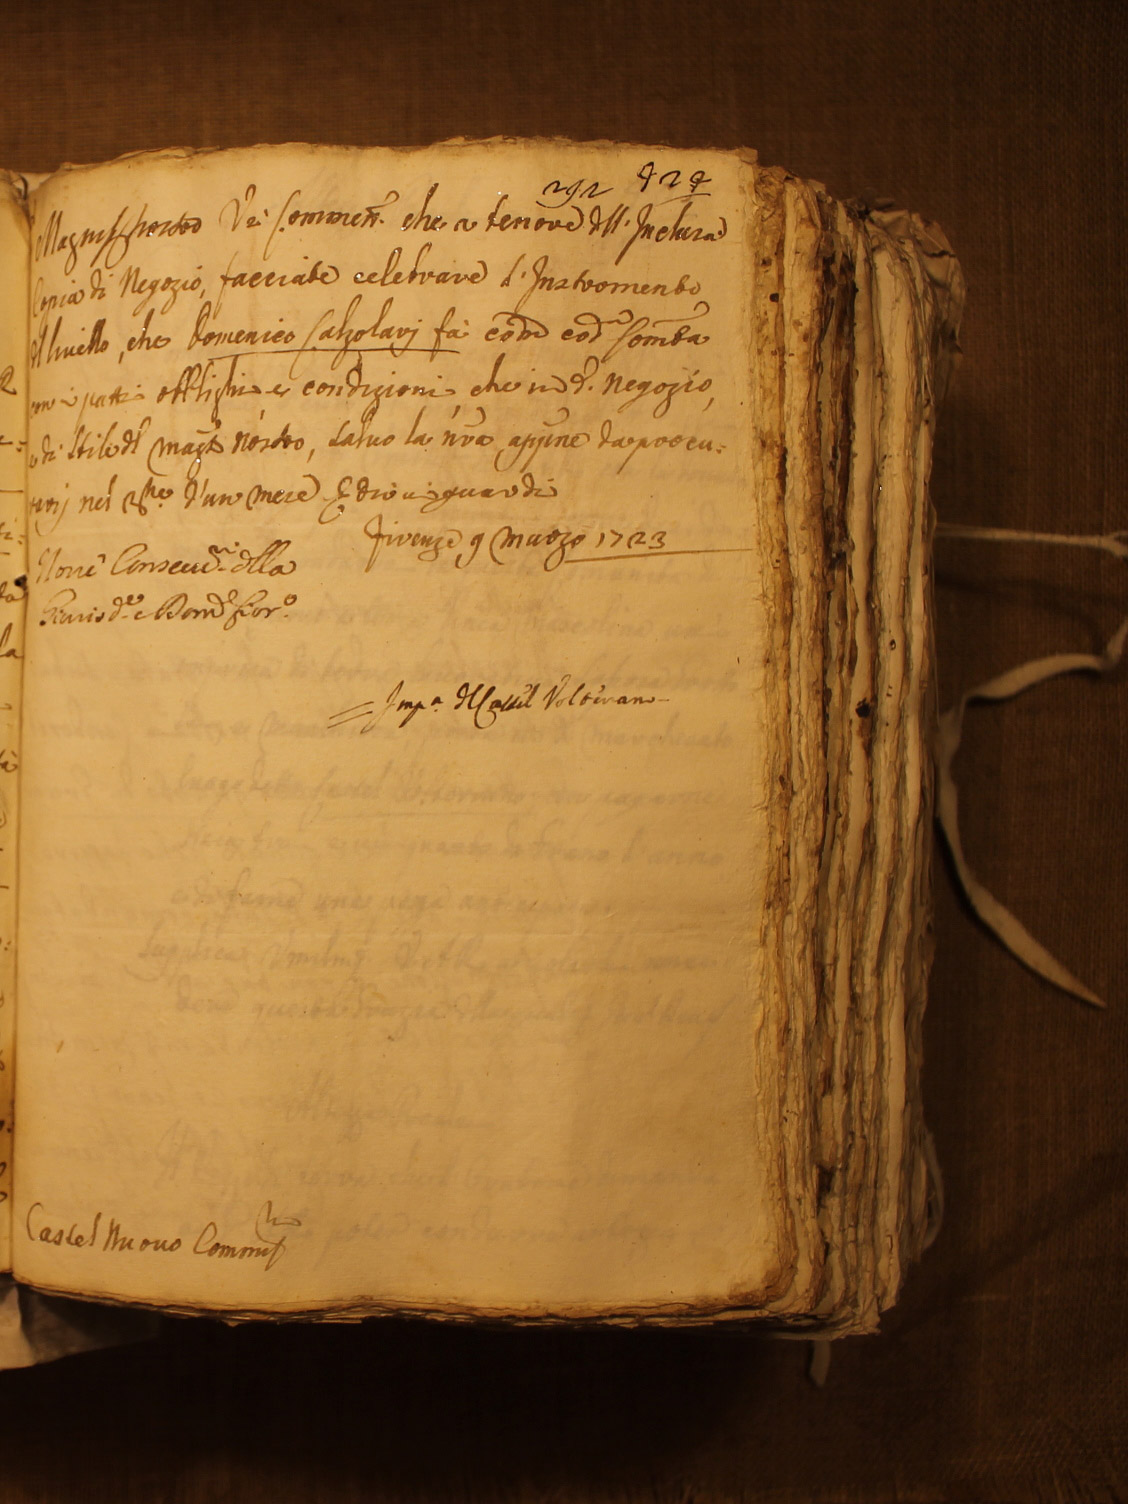 292 829
Magnif. Nostro Vi Commett. che a tenore dll' Inclusa
Copia di Negozio, facciate celebrare l' Instromento
dl livello, che Domenico Calzolarj fà con cod.a Comtà
con i patti obblighi e condizioni che in d.o Negozio,
e di stile dl mag.to nostro, salvo la n'ra appne da procu:
rarsj nel t'ne d'un mese E Dio vi guardi
Firenze 9 Marzo 1723
Nove Conserv.ri dlla
Giurisd.e e Dom.o Fior.o
Imp.a dl Cast.l Volterrano
Castel Nuovo Comm